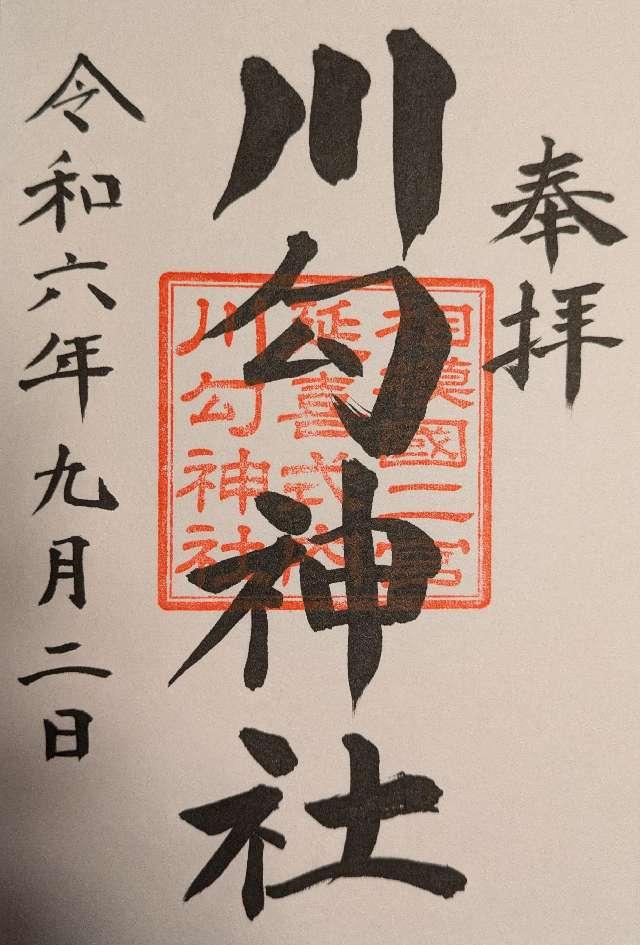 奉拝
川勾神社
相模國二宮
延喜式内
川勾神社
令和六年九月二日